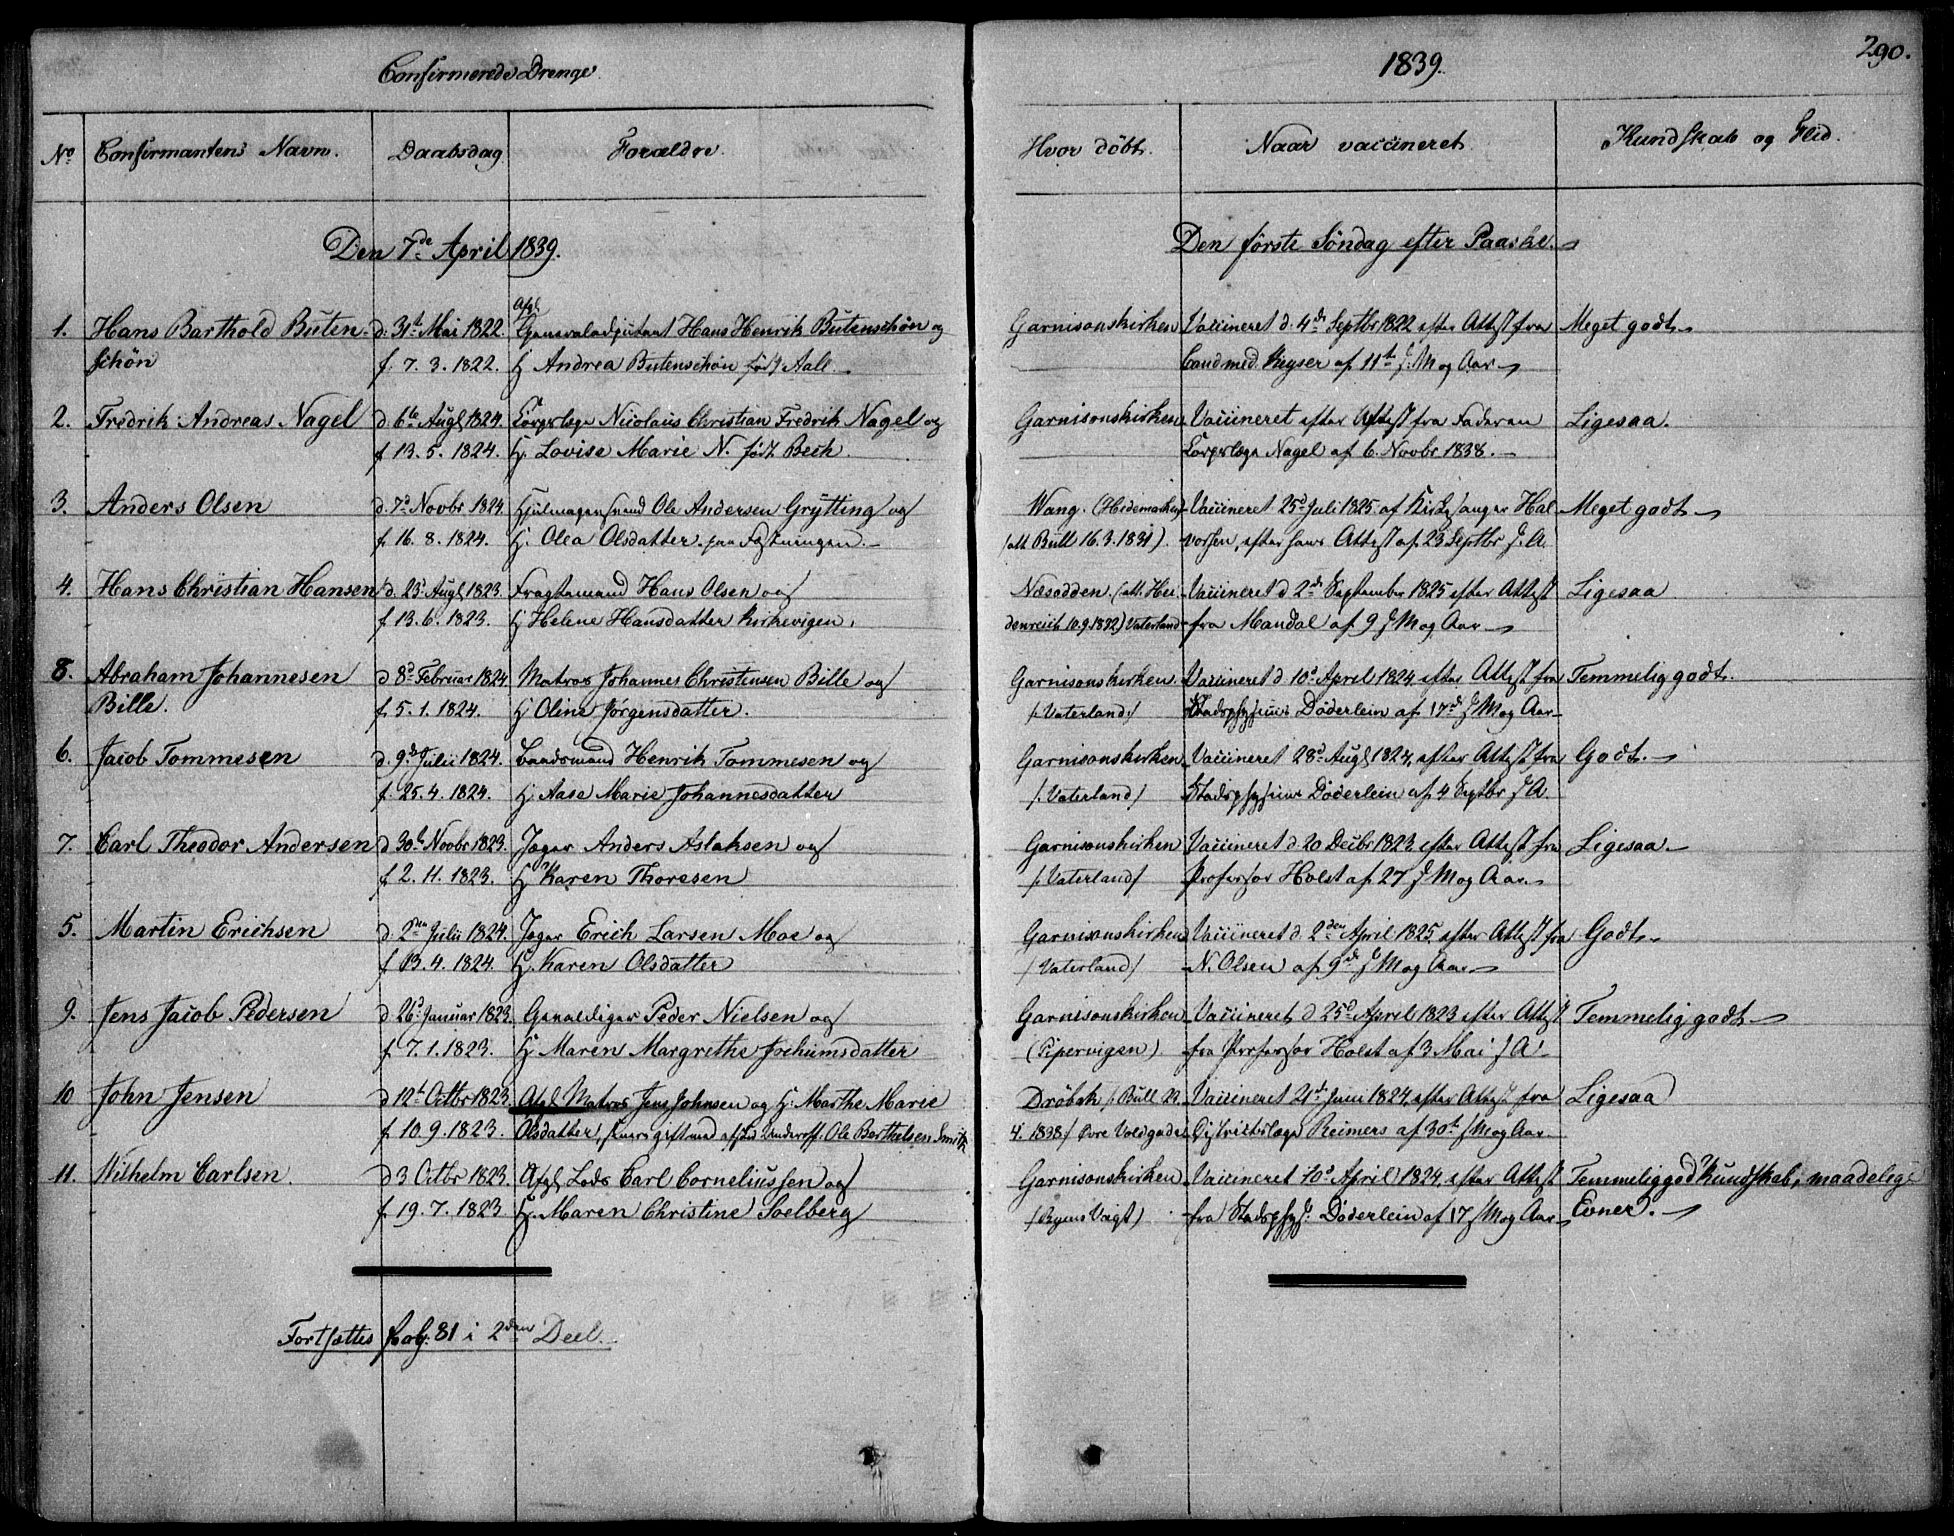 Confirmerede Drenge.
1839.
290.
No
Confirmantens Navn.
Daabsdag
Forældre.
Hvor döbt.
Naar vaccineret
Kundskab og Flid.
Den 7de April 1839.
Den förste Söndag efter Paaske.
1. Hans Barthold Buten- d. 31te Mai 1822. Afgl Generaladjutant Hans Henrik Butenschön og Garnisonskirken Vaccineret d. 4de Septbr 1822 efter Attest fra Meget godt
schön f. 7. 3. 1822. H. Andrea Butenschön født Aall. Cand med. Keyser af 11te s: M og Aar
2. Fredrik Andreas Nagel d. 6te Augs 1824. Corpslæge Nicolaus Christian Fredrik Nagel og Garnisonskirken Vaccineret efter Attest fra Faderen Ligesaa.
f 13. 5. 1824. H. Lovise Marie N. født Bech. Corpslæge Nagel af 6. Novbr 1838.
3. Anders Olsen d. 7d Novbr 1824. Hjulmagersvend Ole Andersen Grÿtting og Wang. (Hedemarken) Vaccineret 25d Juli 1825 af Kirkesanger Hal- Meget godt
f. 16. 8. 1824. H. Olea Olsdatter paa Fæstningen. (att Bull 16. 3. 1831). vorsen, efter hans Attest af 23 Septbr s. A.
4. Hans Christian Hansen d. 23d Augs 1823. Fragtemand Hans Olsen og Næsodden. (att. Hei- Vaccineret d 2den September 1825 efter Attest Ligesaa
f. 13. 6. 1823. H Helene Hansdatter Kirkevigen. denreich 10. 9. 1832) Vaterland fra Mandal af 9 s M og Aar
8. Abraham Johannesen d 8d Februar 1824 Matros Johannes Christensen Bille og Garnisonskirken Vaccineret d 10d April 1824 efter Attest fra Temmelig godt.
Bille. f. 5. 1. 1824. H Oline Jörgensdatter. /: Vaterland/ Stadsphysicus Döderlein af 17d s M og Aar
6. Jacob Tommesen d. 9de Julii 1824. Baadsmand Henrik Tommesen og Garnisonskirken Vaccineret 28d Augs 1824, efter Attest fra Godt.
f. 25. 4. 1824. H. Aase Marie Johannesdatter /: Vaterland/ Stadsphysicus Döderlein af 4 Septbr s A.
7. Carl Theodor Andersen d 30te Novbr 1823. Jæger Anders Aslaksen og Garnisonskirken Vaccineret d. 20 Decbr 1823 efter Attest fra Ligesaa.
f 2. 11. 1823. H Karen Thoresen /: Vaterland/ Professor Holst af 27 s M og Aar.
5. Martin Erichsen d. 2den Julii 1824. Jæger Erich Larsen Moe og Garnisonskirken Vaccineret d. 2den April 1825 efter Attest fra Godt
f 13. 4. 1824. H. Karen Olsdatter /Vaterland/ N. Olsen af 9de s M og Aar
9. Jens Jacob Pedersen d 26d Januar 1823. Gevaldiger Peder Nielsen og Garnisonskirken Vaccineret d 25d April 1823 efter Attest Temmelig godt
f. 7. 1. 1823. H Maren Margrethe Jochumsdatter (Pipervigen) fra Professor Holst af 3 Mai s A.
10 John Jensen d 12te Octbr 1823. Afgl Matros Jens Johnsen og H: Marthe Marie Dröbak /: Bull 22. Vaccineret 21de Juni 1824, efter Attest fra Ligesaa
f. 10. 9. 1823. Olsdatter, senere gift med afsked Underoff. Ole Barthelsen Smith 4. 1838/ Övre Voldgade Districtslæge Reimers af 30te s M og Aar
11. Wilhelm Carlsen. d 3 Octbr 1823. Afgl Lods Carl Corneliussen og Garnisonskirken Vaccineret 10d April 1824, efter Attest Temmelig god Kundskab, maadelige
f. 19. 7. 1823 H. Maren Christine Soelberg /Byens Vægt) fra Stadsphys: Döderlein af 17 s M og Aar Evner.
Fortsættes Pag: 81 i 2den Deel.